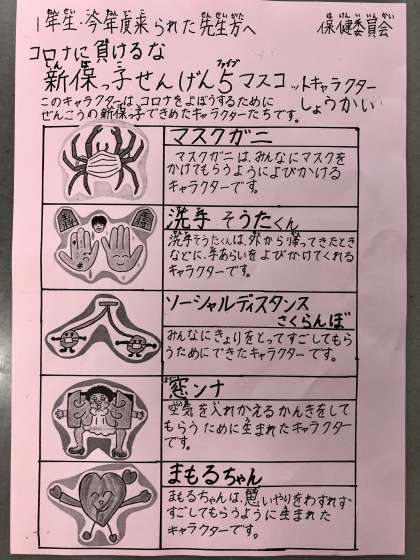 1年生・今年度来られた先生方へ 保健委員会
コロナに負けるな
新保っ子せんげん5マスコットキャラクター
しょうかい
このキャラクターは、コロナをよぼうするために
ぜんこうの新保っ子できめたキャラクターたちです。
マスクガニ
マスクガニは、みんなにマスクを
かけてもらうようによびかける
キャラクターです。
洗手そうたくん
洗手そうたくんは、外から帰ってきたとき
などに、手あらいをよびかけてくれる
キャラクターです。
ソーシャルディスタンス
さくらんぼ
みんなにきょりをとってすごしてもら
うためにできたキャラクターです。
窓ンナ
空気を入れかえるかんきをして
もらうために生まれたキャラクター
です。
まもるちゃん
まもるちゃんは、思いやりをわすれず
すごしてもらうように生まれた
キャラクターです。